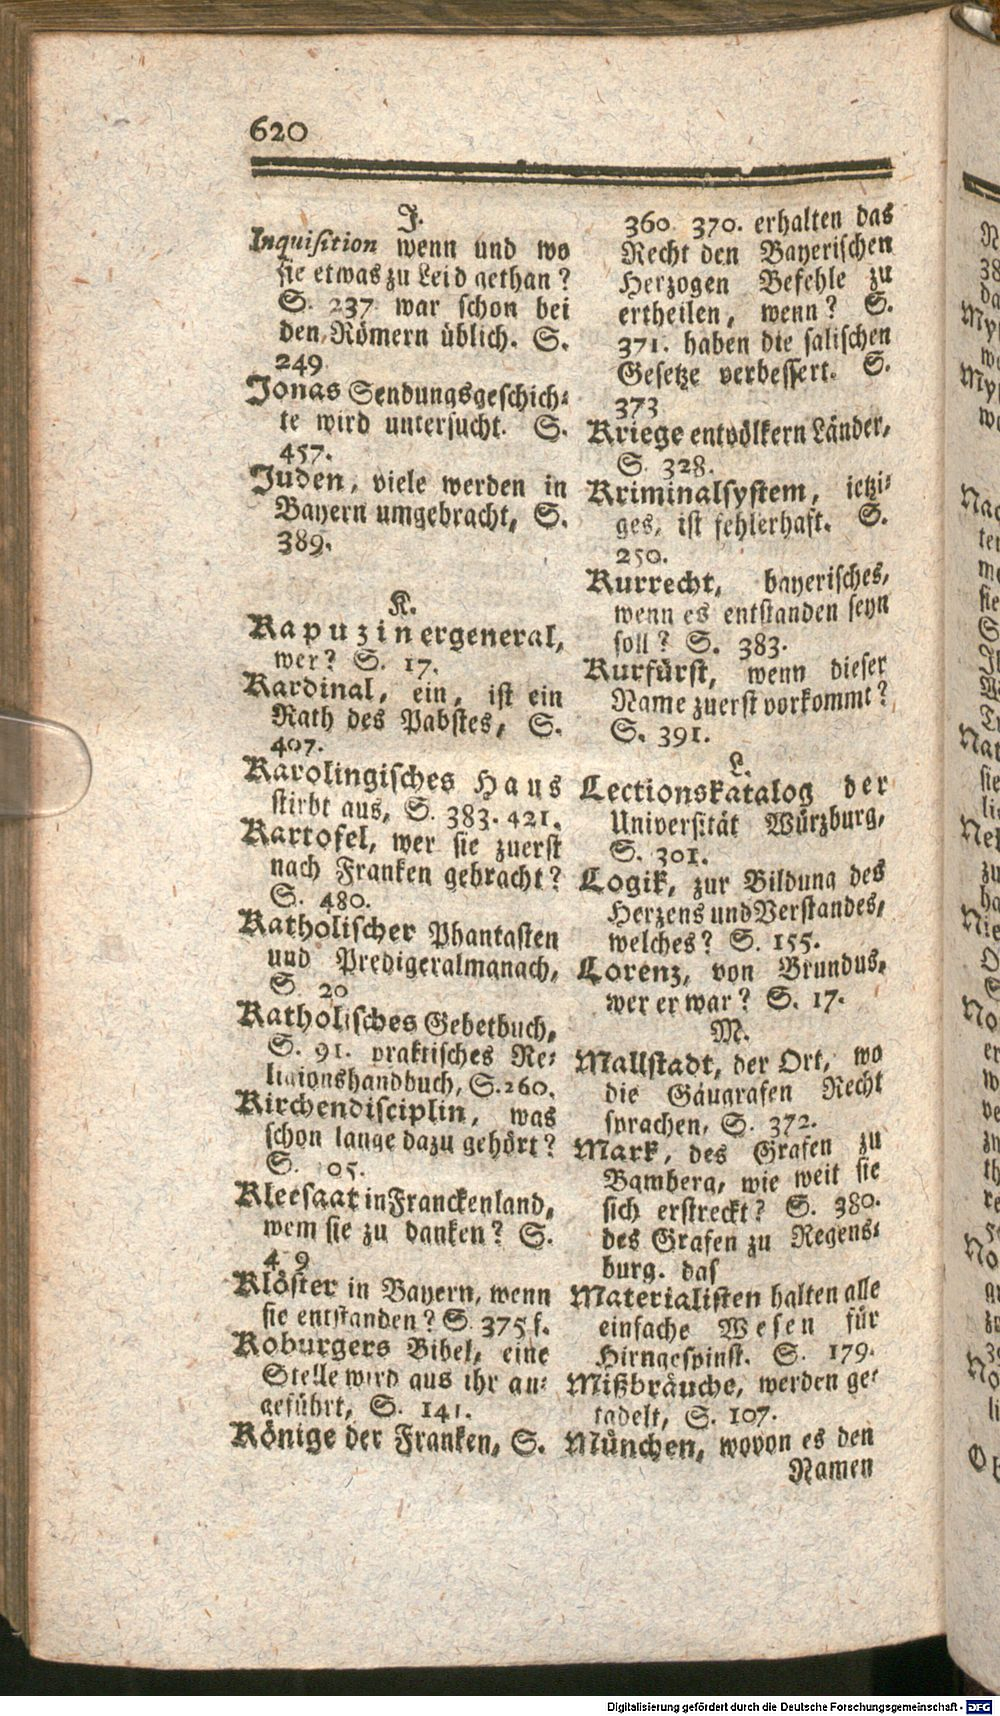 620
J.
Inquisition wenn und wo
sie etwas zu Leid gethan?
S. 237. war schon bei
den Römern üblich. S.
249
Jonas Sendungsgeschich-
te wird untersucht. S.
457.
Juden, viele werden in
Bayern umgebracht, S.
389.
K.
Kapuzinergeneral,
wer? S. 17.
Kardinal, ein, ist ein
Rath des Pabstes, S.
407.
Karolingisches Haus
stirbt aus, S. 383. 421.
Kartofel, wer sie zuerst
nach Franken gebracht?
S. 480.
Katholischer Phantasten
und Predigeralmanach,
S. 20
Katholisches Gebetbuch,
S. 91. praktisches Re-
ligionshandbuch, S. 260.
Kirchendisciplin, was
schon lange dazu gehört?
S. 05.
Kleesaat in Franckenland,
wem sie zu danken? S.
4 9
Klöster in Bayern, wenn
sie entstanden? S. 375 f.
Koburgers Bibel, eine
Stelle wird aus ihr an-
geführt, S. 141.
Könige der Franken, S.
360 370. erhalten das
Recht den Bayerischen
Herzogen Befehle zu
ertheilen, wenn? S.
371. haben die salischen
Gesetze verbessert. S.
373
Kriege entvölkern Länder,
S. 328.
Kriminalsystem, jetzi-
ges, ist fehlerhaft. S.
250.
Kurrecht, bayerisches,
wenn es entstanden seyn
soll? S. 383.
Kurfürst, wenn dieser
Name zuerst vorkommt?
S. 391.
L.
Lectionskatalog der
Universität Würzburg,
S. 301.
Logik, zur Bildung des
Herzens und Verstandes,
welches? S. 155.
Lorenz, von Brundus,
wer er war? S. 17.
M.
Mallstadt, der Ort, wo
die Gäugrafen Recht
sprachen, S. 372.
Mark, des Grafen zu
Bamberg, wie weit sie
sich erstreckt? S. 380.
des Grafen zu Regens-
burg. das
Materialisten halten alle
einfache Wesen für
Hirngespinst. S. 179.
Mißbräuche, werden ge-
tadelt, S. 107.
München, wovon es den
Namen
Digitalisierung gefördert durch die Deutsche Forschungsgemeinschaft - DFG